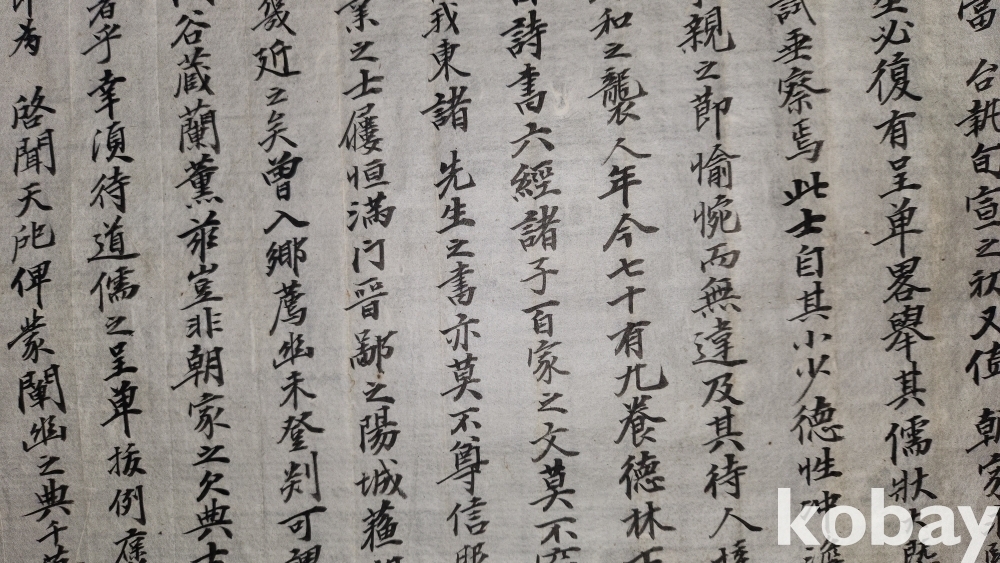 富 台執旬宣之初又值 朝家
必復有呈单畧舉其儒狀大槩
試垂察焉此士自其小少德性冲澹
親之節愉惋而無違及其待人接
和之襲人年今七十有九養德林下
詩書六經諸子百家之文莫不
我東諸 先生之書亦莫不尊信
業之士屨恒滿门晋鄙之陽城薩
幾近之矣曾入鄉薦幽未登剡可謂
谷蔵蘭薰玆豈非朝家之欠典士
者乎幸湏待道儒之呈单拔例
为 啓聞天陛俾蒙闡幽之典千萬
kobay